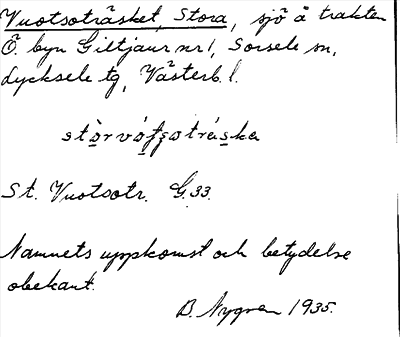 Vuotsoträsket, Stora, sjö å trakten
Ö. byn Giltjaur nr 1, Sorsele sn,
Lycksele tg, Västerb. l.
stòrvófsotráska
St. Vuotsotr. G. 33.
Namnets uppkomst och betydelse
obekant.
B. Nygren 1935.